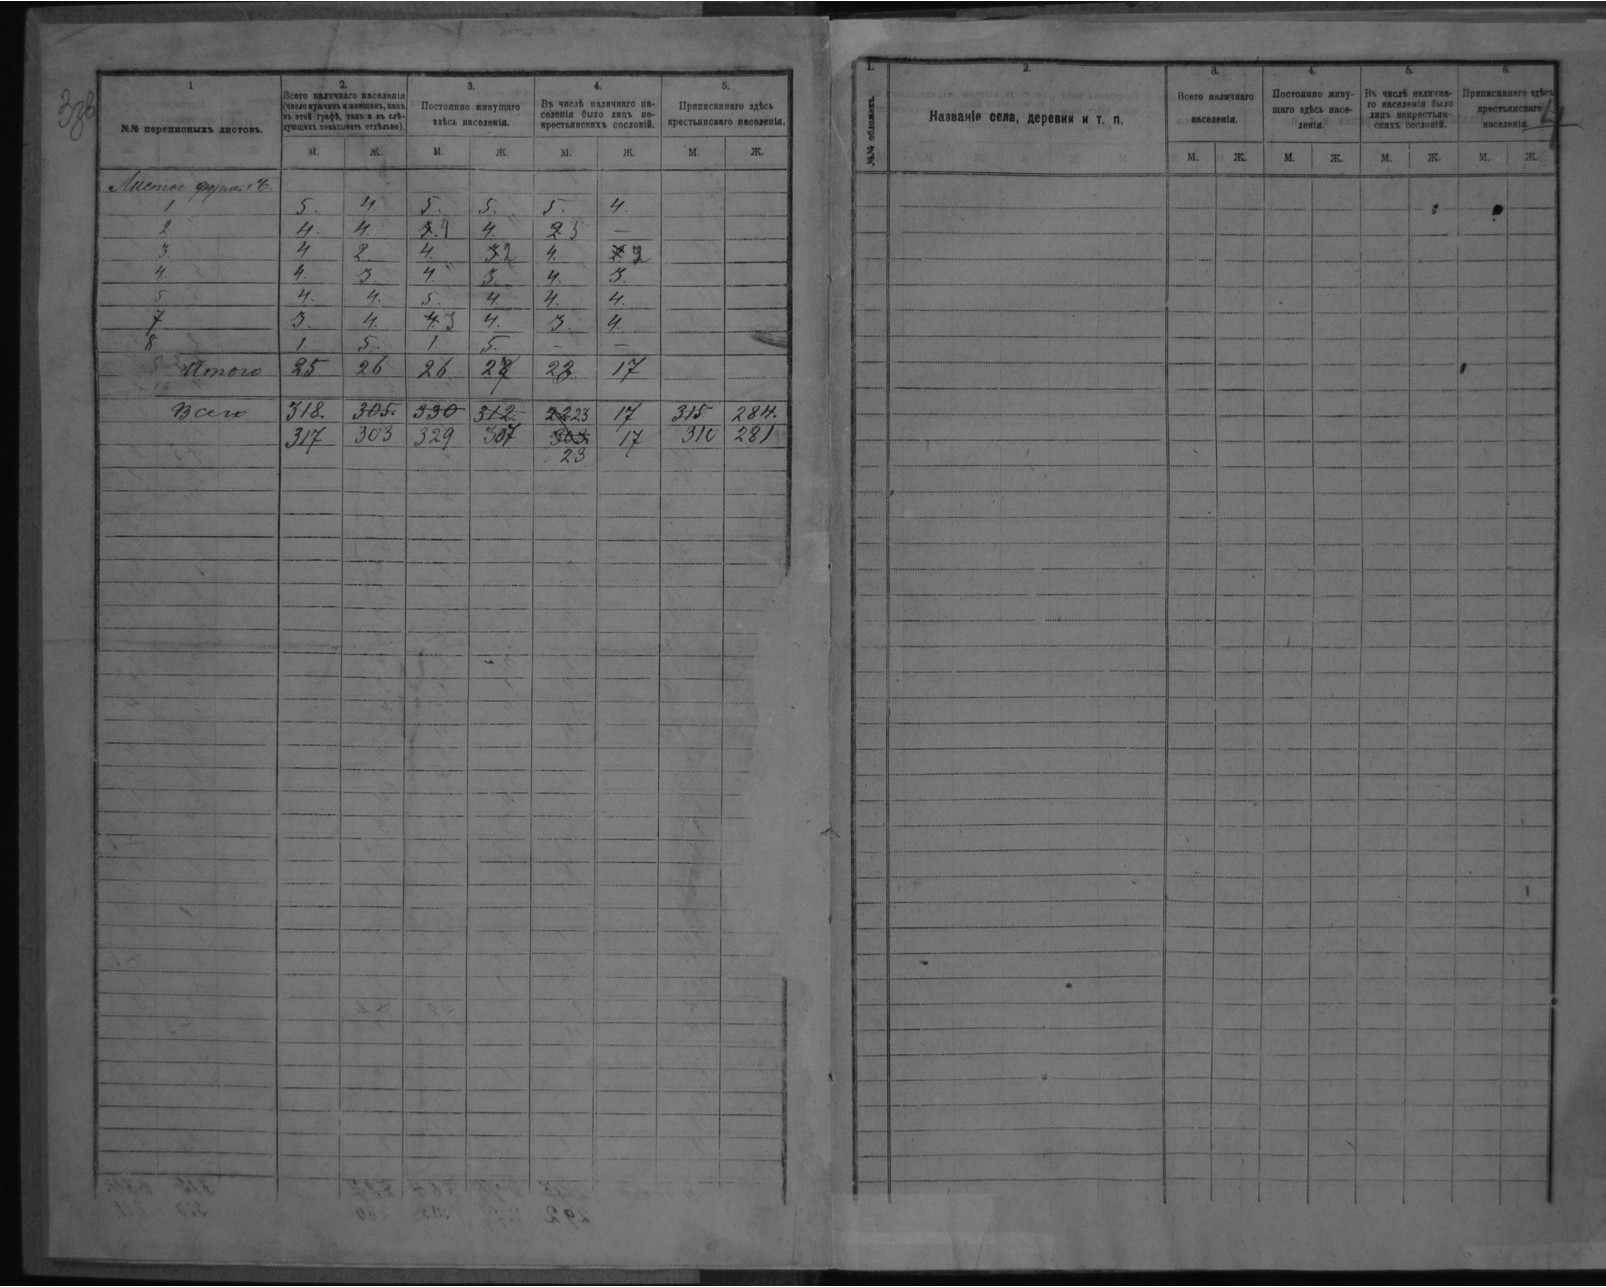 1
2.
3.
4.
5.
№№ переписныхъ листовъ.
Всего наличнаго населенія
(число мужчинъ и женщинъ, какъ
въ этой графѣ, такъ и въ слѣ-
дующихъ показывать отдѣльно).
Постоянно живущаго
здѣсь населенія.
Въ числѣ наличнаго на-
селенія было лицъ не-
крестьянскихъ сословій.
Приписаннаго здѣсь
крестьянскаго населенія.
М. Ж. М. Ж. М. Ж. М. Ж.
Листов форм
1 5. 4. 5. 5. 5. 4.
2 4. 4. 4 4. 3 —
3 4 2 4. 2 4. 2
4 4. 3. 4 3. 4. 3.
5 4. 4. 5. 4. 4. 4.
7 3. 4. 3 4. 3. 4.
8 1. 5. 1 5. — —
Итого 25 26 26 27 23 17
Всего 318. 305. 330 312 23 17 315 284.
317 303 329 307 303 17 310 281
23
1.
2.
3.
4.
5.
6.
№№ обложекъ.
Названіе села, деревни и т. п.
Всего наличнаго
населенія.
Постоянно живу-
щаго здѣсь насе-
ленія.
Въ числѣ налична-
го населенія было
лицъ некрестьян-
скихъ сословій.
Приписаннаго здѣсь
крестьянскаго
населенія.
4
М. Ж. М. Ж. М. Ж. М. Ж.